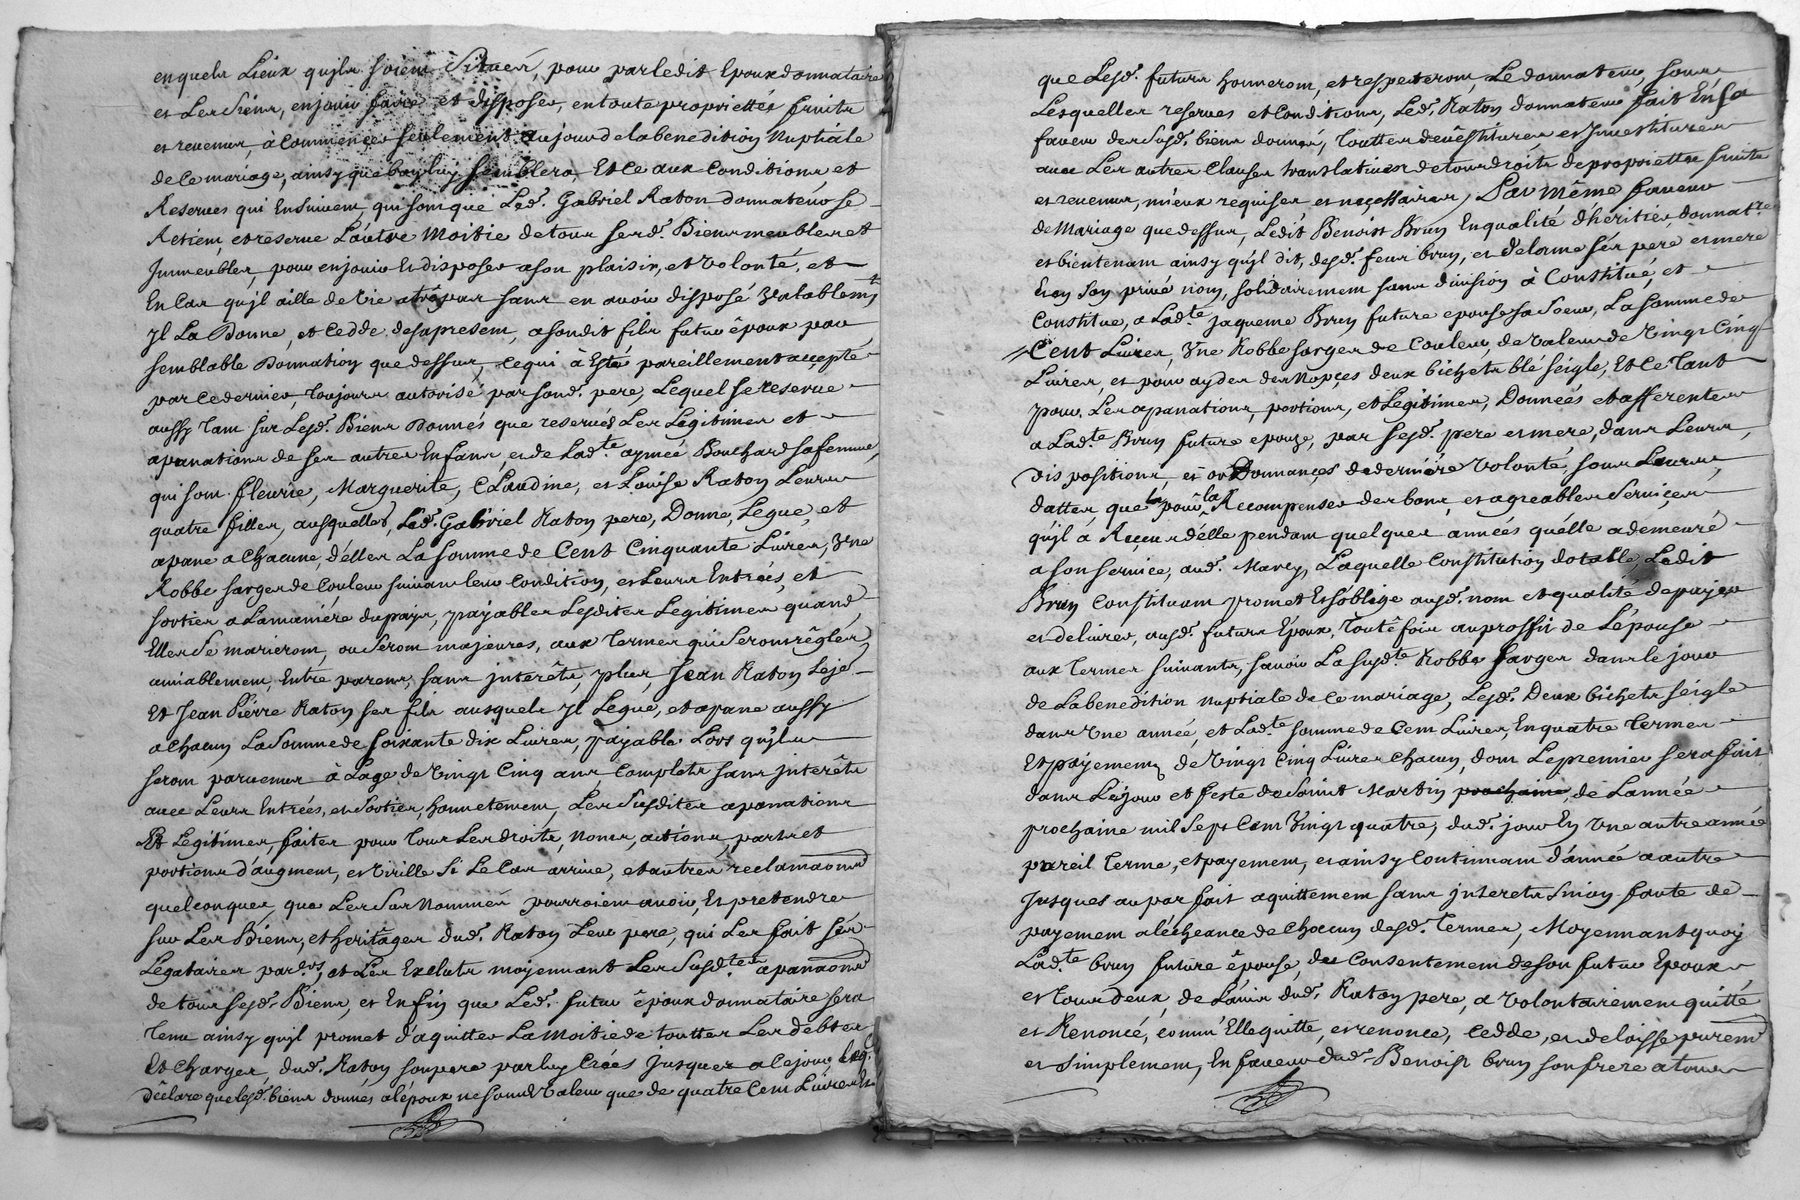 enquels Lieux qujls soient Situés, pour parledit Epoux donnataire
et Les Siens, enjouir faire et disposer, entoute proprietté, fruits
et revenus, à Commencer seulement aujour delabenedition Nuptiale
de Ce mariage, ainsy que bon luy semblera Et Ce aux Conditions et
Reserves qui Ensuivent, qui sont que Led. Gabriel Raton donnateur se
Retient et reserve Lautre Moitié detous sesd. Biens meubles et
Immeubles, pour enjouir Et disposer ason plaisir, et volonté, et
En Cas qujl aille de Vie atrépas sans en avoir disposé Valablemt
Jl La Donne, et Cedde desapresent, asondit fils futur époux par
semblable Donnation que dessus, Cequi à Esté pareillement accepté
par Cedernier, Toujours autorisé par sond. pere, Lequel se reserve
aussy Tant sur Lesd. Biens Donnés que reservés Les Legitimes et
apanations de ses autres Enfans, et de Ladte aymée Bouchard safemme,
qui sont fleurie, Marguerite, Claudine, et Louise Raton Leurs
quatre filles, ausquelles, Led. Gabriel Raton pere, Donne, Legue, et
apane a Chacune, d'elles La somme de Cent Cinquante Livres, Vne
Robbe sarge de Couleur suivant leur Condition, et Leurs Entrées, et
sorties a Lamaniére dupays, payables Lesdites Legitimes quand
Elles Se marieront, ou Seront majeures, aux Termes qui Seront réglés
amiablement, Entre parens, sans jnterêts, plus, Jean Raton Lejé
Et Jean Piérre Raton ses fils ausquels Jl Legue, et apane aussy
a Chacun La Somme de soixante dix Livres, payable Lors qujls
seront parvenus à Lage de Vingt Cinq ans Complets sans jnterêts
avec Leurs Entrées, et Sorties, honnetement, Les Susdites apanations
Et Legitimes, faites pour Tous Les droits, Noms, actions, parts et
portions d'augment, et Virille Si Le Cas arrive, et autres reclamaons
quelconques, que Les Sus Nommés pourroient avoir, Et pretendre
sur Les Biens, et heritages dud. Raton Leur pere, qui Les fait sés
Legataires parers, et Les Exclut moyennant Les Susdtes apanaons
de tous sesd. Biens, et Enfin que Led. futur époux donnataire sera
Tenu ainsy qujl promet d'aquitter La Moitié de touttes Les debtes
Et Charges, dud. Raton son pere par luy Créés Jusques a Cejour
Déclare que lesd. biens donnés al'époux ne sont de Valeur que de quatre Cent Livres
que Lesd. futurs honneront, et respecteront, Le donnateur, sous
Lesquelles reserves et Conditions, Led. Raton donnateur fait En sa
faveur des susd. biens donnés, Touttes devêstitures et Jnvestitures
avec Les autres Clauses translatives de tous droits de proprietté fruits
et revenus, mieux requises et necessaires, Par même faveur
de Mariage que dessus, Ledit Benoist Brun Enqualité d'héritier donnatre
et bientenant ainsy qujl dit, desd. feus brun, et delorme sés pere et mere
En son privé nom, solidairement sans division à Constitué, et
Constitue, a Ladte Jaqueme Brun future epouse sa Soeur, La somme de
Cent Livres, Vne Robbe sarge de Couleur de Valeur de Vingt Cinq
Livres, et pour ayder des Nopçes deux bichets blé séigle, Et Ce Tant
pour Les apanations, portions, et Legitimes, Données et afferentes
a Ladte Brun future epouze, par sesd. pere et mere, dans Leurs
dispositions, et ordonnançes dederniére volonté, sous Leurs
dattes, que pour la Recompenser des bons, et agreables Serviçes
qujl à Reçeus d'élle pendant quelques années quélle a demeuré
a son service, aud. Marcy, Laquelle Constitution dotalle, Ledit
Brun Constituant promet Et s'oblige ausd. nom et qualité de payer
et delivrer, ausd. futurs Epoux, Toutéfois auproffit de L'épouse
aux Termes suivants, savoir La susdte Robbe sarge dans le jour
de Labenedition nuptiale de Ce mariage, Lesd. Deux bichets séigle
dans Vne année, et Ladte somme de Cent Livres, En quatre Termes
Et payements de Vingt Cinq Livres Chacun, dont Lepremier sera fait
dans Le jour et feste de Saint Martin prochaine, de Lannée
prochaine mil Sept Cent Vingt quatre, dud. jour En Vne autre année
pareil Terme, et payement, et ainsy Continuant d'année a autre
Jusques au parfait aquittement sans jnterets Sinon faute de
payement al'écheance de Chacun desd. Termes, Moyennant quoy
Ladte brun future épouse, du Consentement de son futur Epoux
et tous deux, de L'avis dud. Raton pere, a Volontairement quitté
et Renoncé, comm' Elle quitte, et renonce, Cedde, et deloisse puremt
et Simplement, En faveur dud. Benoist brun son frere a tous